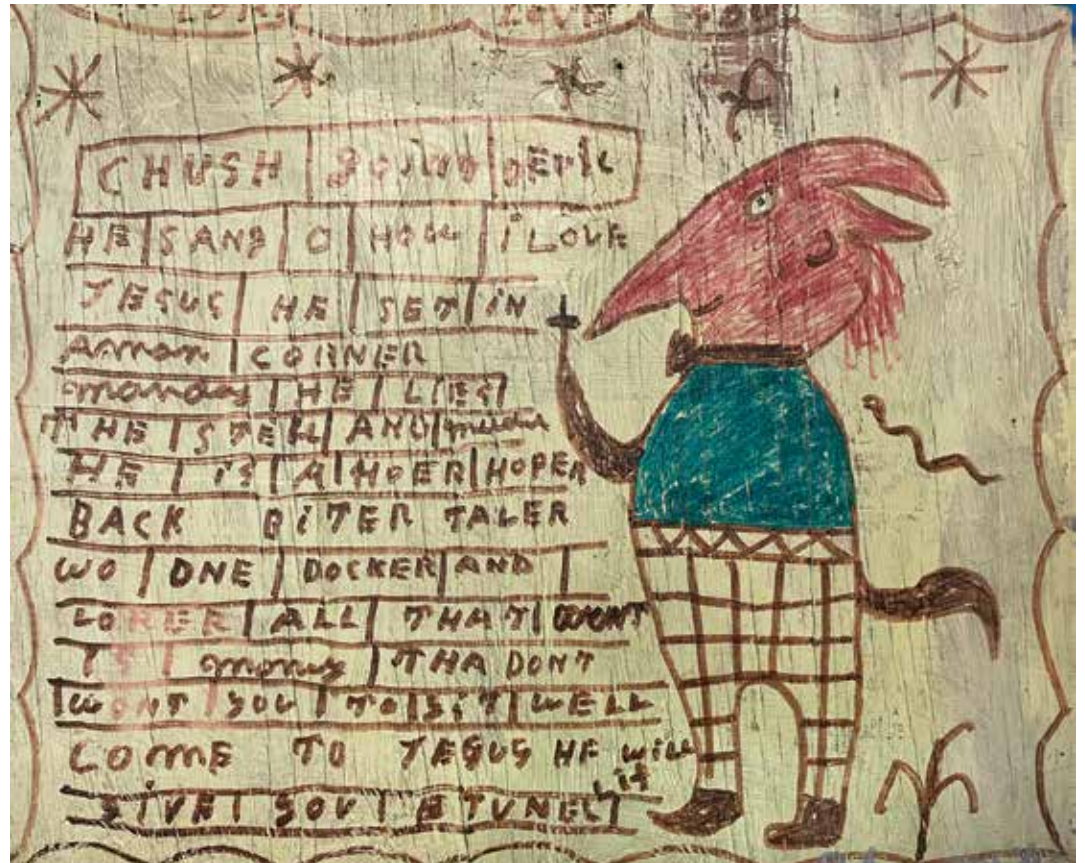 LOVE YOU
CHUSH GOING DEVIL
HE SAND O HOW i LOVE
JESUS HE SET iN
Aman CORNER
manday HE LIES
THE STEH AND
HE is A HOER HOPER
BACK BiTER TALER
WO DNE DOCKER AND
LORER ALL THAT WONT
is mony THA DONT
WONT YOU TO GiT WELL
COME TO JESUS HE WiLL
GiVE YOU ETUNEL LiF